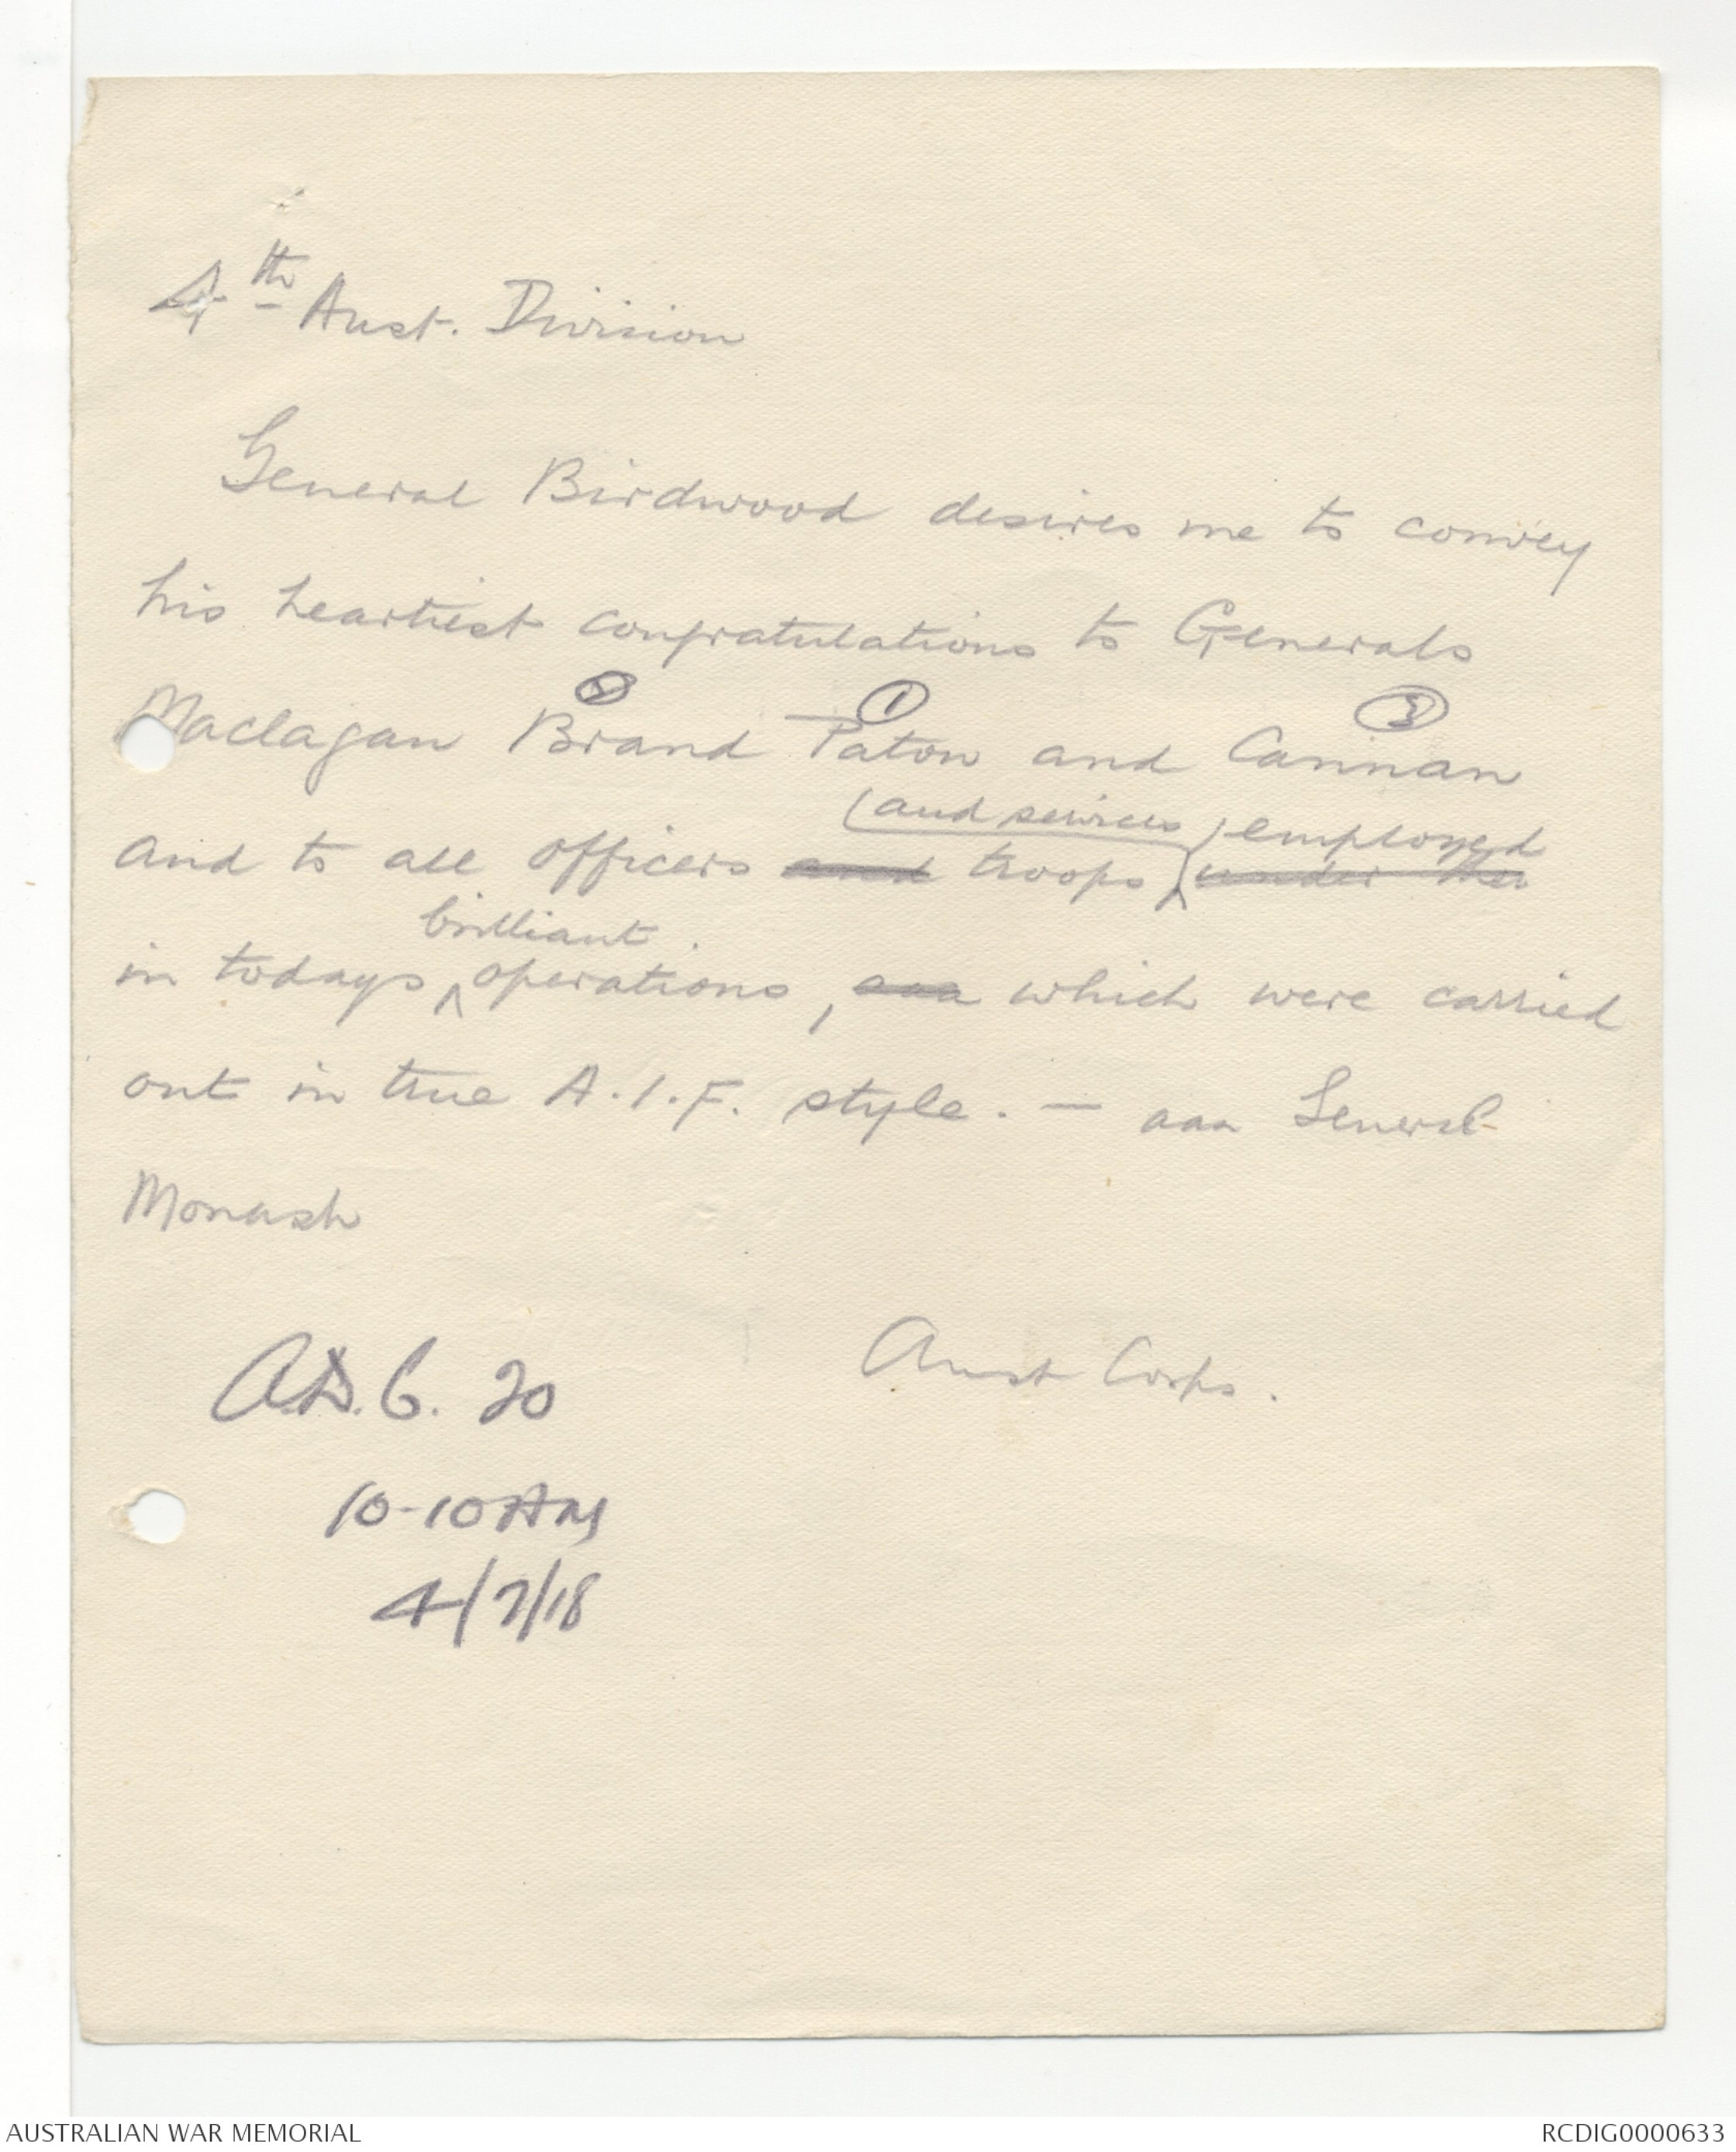 4th Aust. Division
General Birdwood desires me to convey
his heartiest congratulations to Generals
② ① ③
Maclagan Brand Paton and Cannan
(and services) employed
and to all officers and troops under their
brilliant
in todays operations, aaa which were carried
out in true A.I.F. style. — aaa General
Monash
Aust Corps.
A.D.C. 20
10-10 AM
4/7/18
AUSTRALIAN WAR MEMORIAL
RCDIG0000633